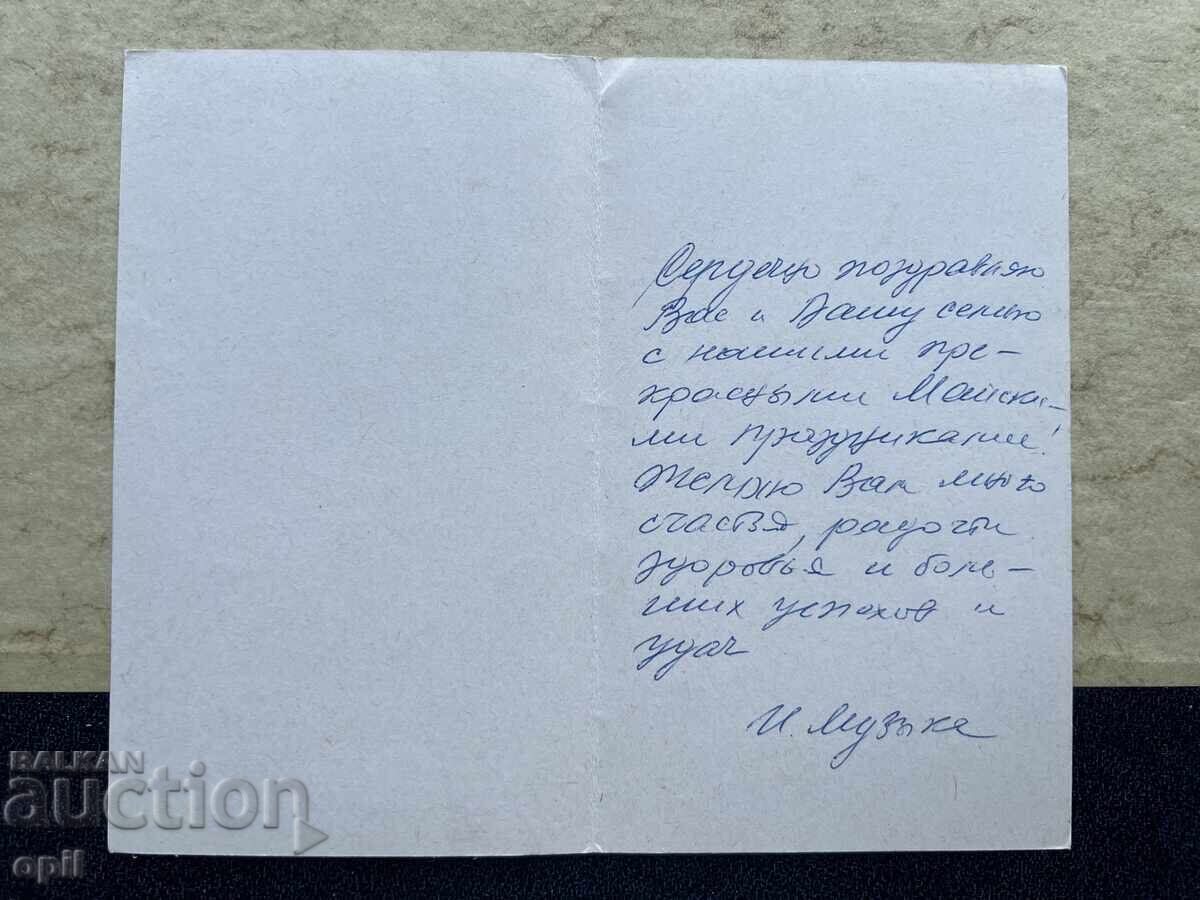 Сердечно поздравляю
Вас и Вашу семью
с нашими пре-
красными Майски-
ми праздниками!
Желаю Вам много
счастья, радости
здоровья и боль-
ших успехов и
удач
И. Музыка
BALKAN
auction
opil